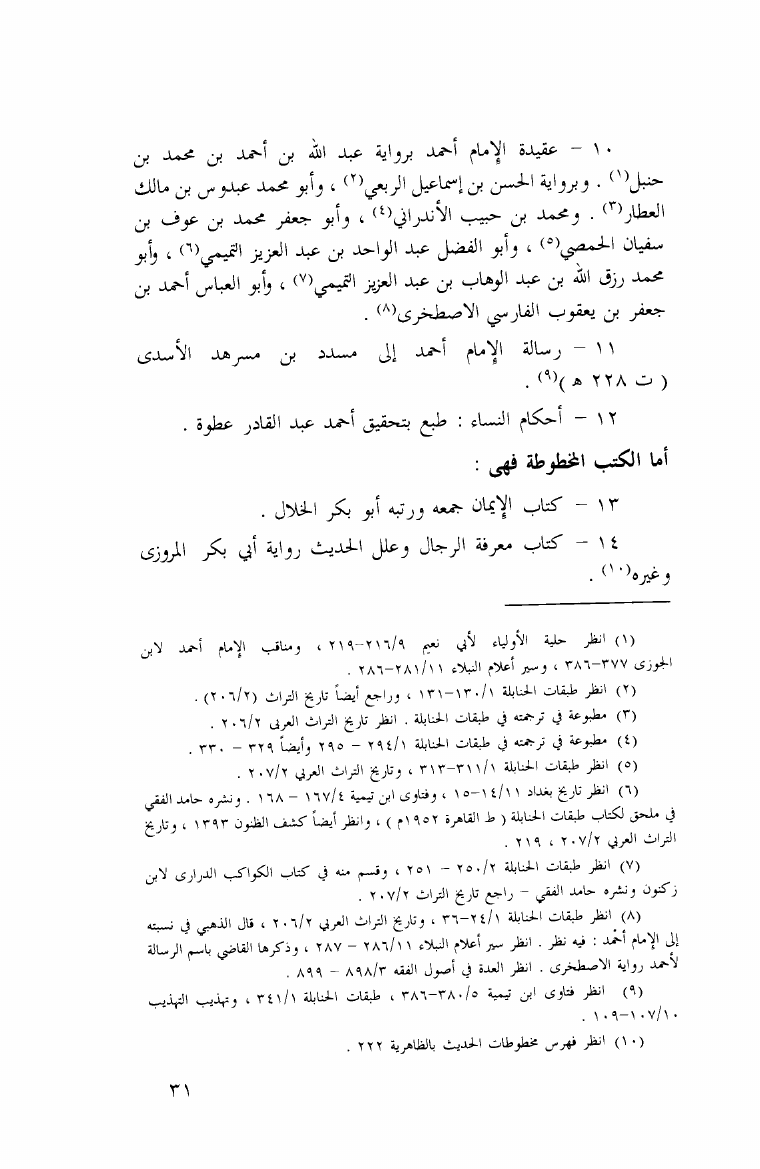 ١٠ – عقيدة الإمام أحمد برواية عبد الله بن أحمد بن محمد بن
حنبل(١) . وبرواية الحسن بن إسماعيل الربعي(٢) ، وأبو محمد عبدوس بن مالك
العطار(٣) . ومحمد بن حبيب الأندراني(٤) ، وأبو جعفر محمد بن عوف بن
سفيان الحمصي(٥) ، وأبو الفضل عبد الواحد بن عبد العزيز التميمي(٦) ، وأبو
محمد رزق الله بن عبد الوهاب بن عبد العزيز التميمي(٧) ، وأبو العباس أحمد بن
جعفر بن يعقوب الفارسي الاصطخرى(٨) .
١١ – رسالة الإمام أحمد إلى مسدد بن مسرهد الأسدى
( ت ٢٢٨ ه )(٩) .
١٢ – أحكام النساء : طبع بتحقيق أحمد عبد القادر عطوة .
أما الكتب المخطوطة فهى :
١٣ – كتاب الإيمان جمعه ورتبه أبو بكر الخلال .
١٤ – كتاب معرفة الرجال وعلل الحديث رواية أبي بكر المروزى
وغيره(١٠) .
(١) انظر حلية الأولياء لأبي نعيم ٢١٦/٩–٢١٩ ، ومناقب الإمام أحمد لابن
الجوزى ٣٧٧–٣٨٦ ، وسير أعلام النبلاء ٢٨١/١١–٢٨٦ .
(٢) انظر طبقات الحنابلة ١٣٠/١–١٣١ ، وراجع أيضاً تاريخ التراث (٢٠٦/٢) .
(٣) مطبوعة في ترجمته في طبقات الحنابلة . انظر تاريخ التراث العربى ٢٠٦/٢ .
(٤) مطبوعة في ترجمته في طبقات الحنابلة ٢٩٤/١ – ٢٩٥ وأيضاً ٣٢٩ – ٣٣٠ .
(٥) انظر طبقات الحنابلة ٣١١/١–٣١٣ ، وتاريخ التراث العربي ٢٠٧/٢ .
(٦) انظر تاريخ بغداد ١٤/١١–١٥ ، وفتاوى ابن تيمية ١٦٧/٤ – ١٦٨ . ونشره حامد الفقي
في ملحق لكتاب طبقات الحنابلة ( ط القاهرة ١٩٥٢م ) ، وانظر أيضاً كشف الظنون ١٣٩٣ ، وتاريخ
التراث العربي ٢٠٧/٢ ، ٢١٩ .
(٧) انظر طبقات الحنابلة ٢٥٠/٢ – ٢٥١ ، وقسم منه في كتاب الكواكب الدرارى لابن
زكنون ونشره حامد الفقي – راجع تاريخ التراث ٢٠٧/٢ .
(٨) انظر طبقات الحنابلة ٢٤/١–٣٦ ، وتاريخ التراث العربي ٢٠٦/٢ ، قال الذهبي في نسبته
إلى الإمام أحمد : فيه نظر . انظر سير أعلام النبلاء ٢٨٦/١١ – ٢٨٧ ، وذكرها القاضي باسم الرسالة
لأحمد رواية الاصطخرى . انظر العدة في أصول الفقه ٨٩٨/٣ – ٨٩٩ .
(٩) انظر فتاوى ابن تيمية ٣٨٠/٥–٣٨٦ ، طبقات الحنابلة ٣٤١/١ ، وتهذيب التهذيب
١٠٧/١٠–١٠٩ .
(١٠) انظر فهرس مخطوطات الحديث بالظاهرية ٢٢٢ .
٣١